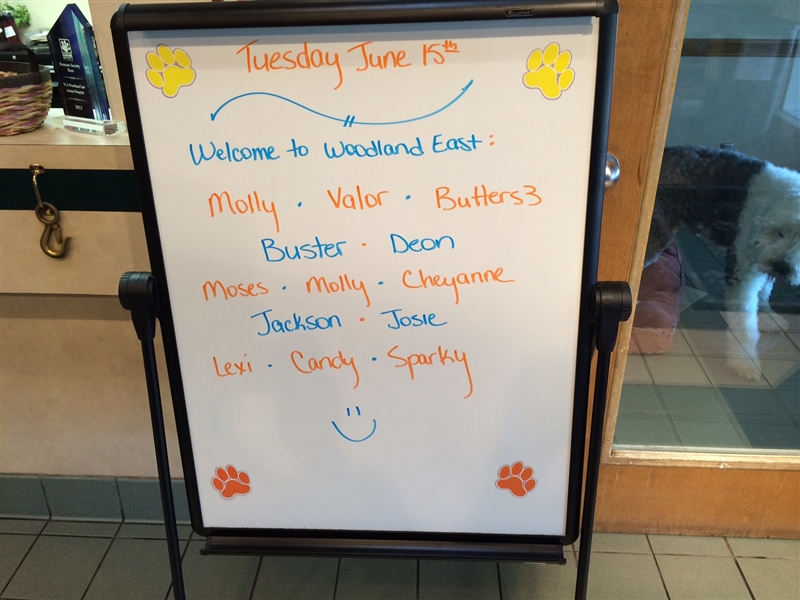 Tuesday June 15th
Welcome to Woodland East:
Molly · Valor · Butters3
Buster · Deon
Moses · Molly · Cheyanne
Jackson · Josie
Lexi · Candy · Sparky
Quartet
2013